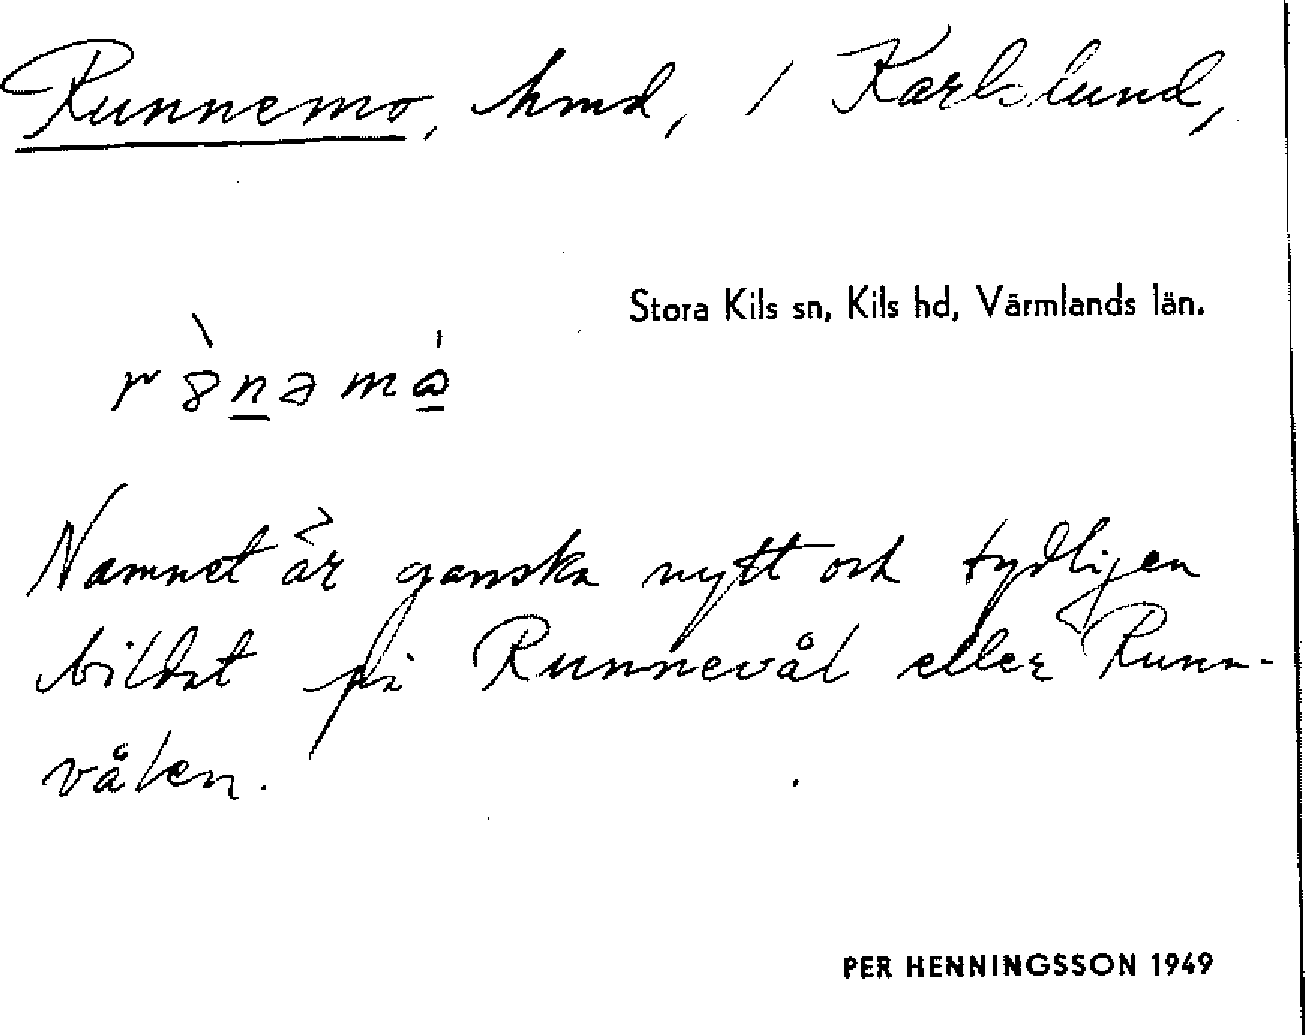 Runnemo, hmd, / Karlslund,
Stora Kils sn, Kils hd, Värmlands län.
Namnet är ganska nytt och tydligen
bildat på Runnevål eller Runn-
vålen.
PER HENNINGSSON 1949